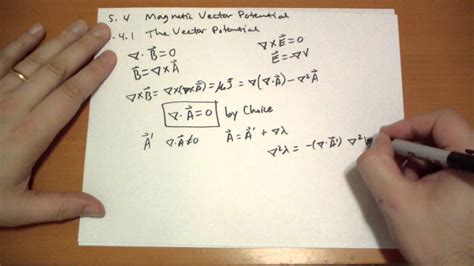 5.4 Magnetic Vector Potential
.4.1 The Vector Potential
∇·B⃗=0 ∇×E⃗=0
B⃗=∇×A⃗ E⃗=-∇V
∇×B⃗=∇×(∇×A⃗)=μJ⃗=∇(∇·A⃗)-∇²A⃗
∇·A⃗=0 by Choice
A⃗' ∇·A⃗≠0 A⃗=A⃗'+∇λ
∇²λ=-(∇·A⃗') ∇²